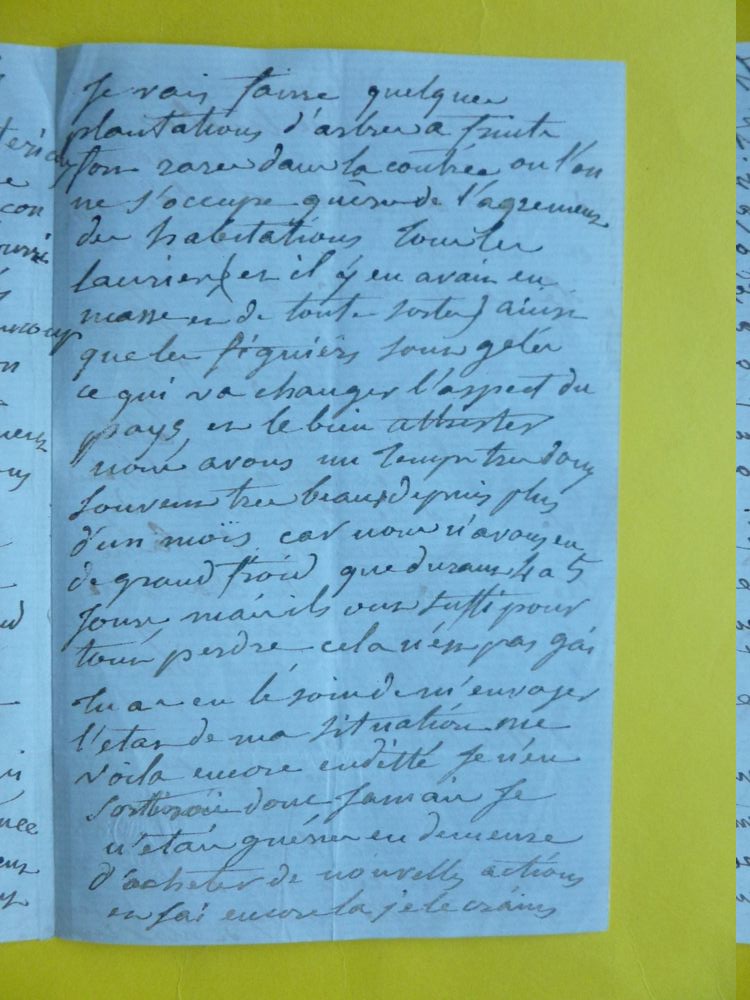 Je vais faire quelques
plantations d'arbres a fruits
fort rares dans la contrée ou l'on
ne s'occupe guère de l'agrement
des habitations tous les
lauriers (et il y en avait en
masse et de toute sorte) ainsi
que les figuiérs sont gelés
ce qui va changer l'aspect du
pays, et le bien attrister
nous avons un temps tres doux
souvent tres beau depuis plus
d'un mois car nous n'avons eu
de grand froid que durant 4 a 5
jours mais ils ont suffi pour
tout perdre cela n'est pas gai
tu as eu le soin de m'envoyer
l'etat de ma situation me
voila encore endétté je n'en
sortirai donc jamais je
n'etais guére en demeure
d'acheter de nouvelles actions
en fai encore la je le crains
con